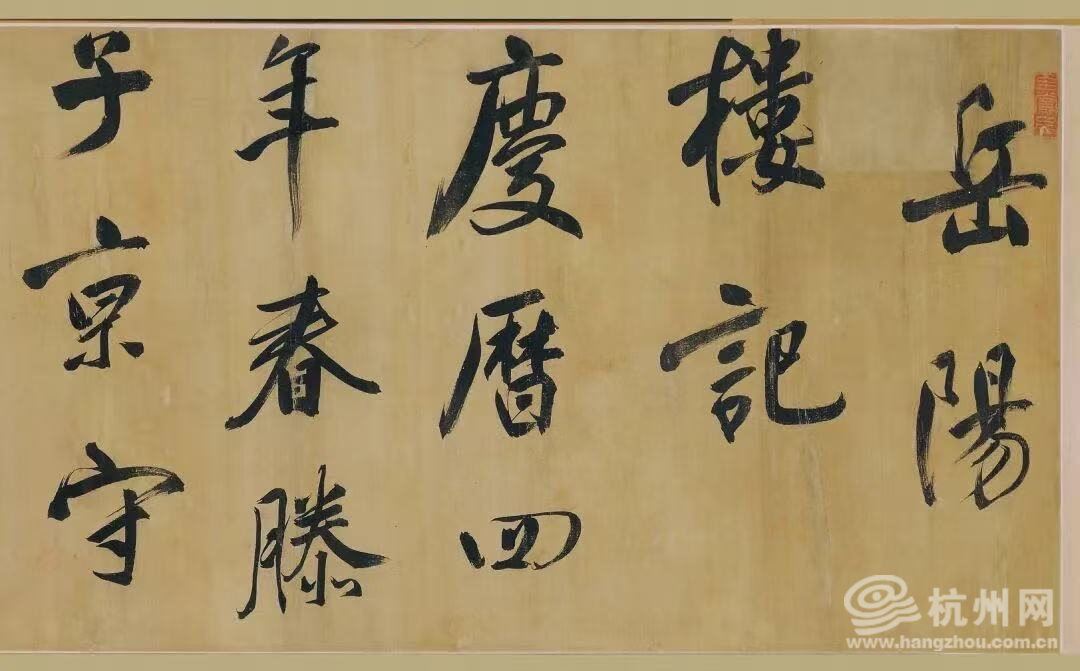 岳陽
樓記
慶曆四
年春滕
子京守
杭州网
www.hangzhou.com.cn